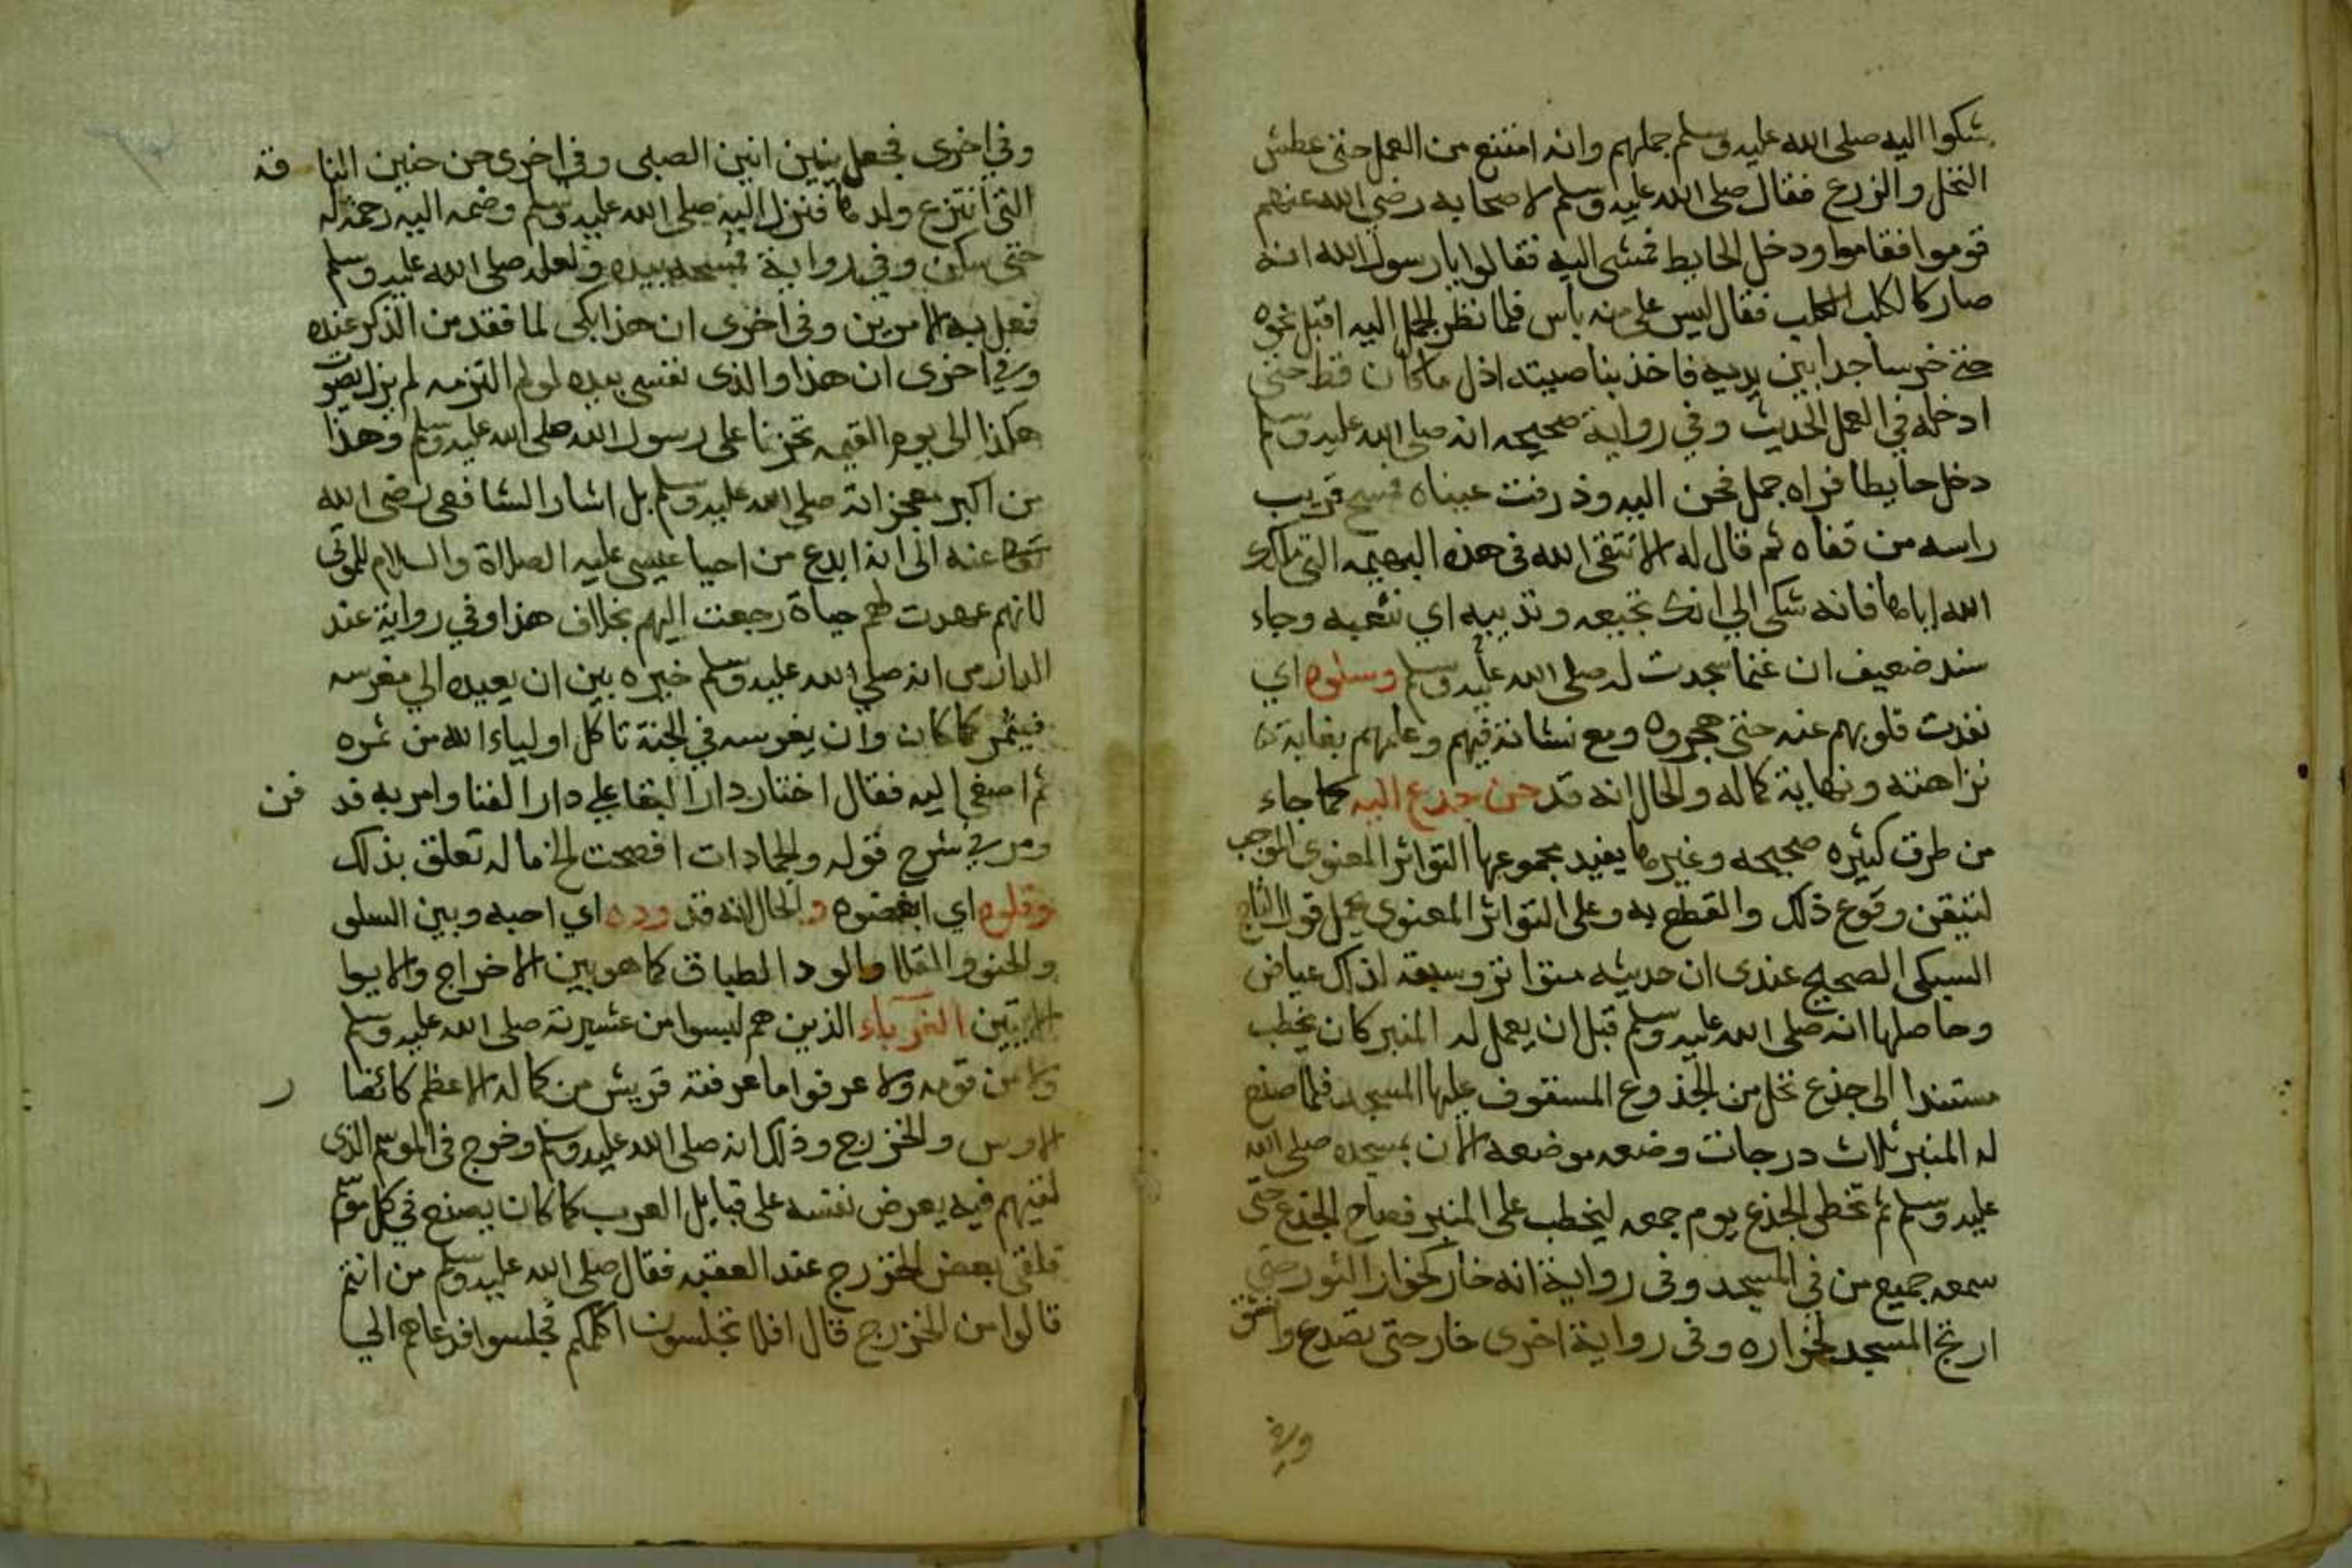 شكوا اليه صلى الله عليه وسلم جملهم وانه امتنع من العمل حتى عطش
النخل والزرع فقال صلى الله عليه وسلم لاصحابه رضي الله عنهم
قوموا فقاموا ودخل الحايط فمشى اليه فقالوا يا رسول الله انه
صار كالكلب الكلب فقال ليس علي منه باس فلما نظر الجمل اليه اقبل نحوه
حتى خر ساجدا بين يديه فاخذ بناصيته اذل ما كان قط حتى
ادخله في العمل الحديث وفي رواية صحيحه انه صلى الله عليه وسلم
دخل حايطا فراه جمل فحن اليه وذرفت عيناه فمسح قريب
راسه من قفاه ثم قال له الا تتقى الله في هذه البهيمه التي ملكك
الله اياها فانه شكى الي انك تجيعه وتذيبه اي تتعبه وجاء
سند ضعيف ان غنما سجدت له صلى الله عليه وسلم وسلوه اي
نفدت قلوبهم عنه حتى هجروه ومع نشاته فيهم وعلمهم بغاية
نزاهته ونهاية كماله والحال انه قد حن جذع اليه كما جاء
من طرق كثيره صحيحه وغيرها يفيد مجموعها التواتر المعنوي الموجب
لتيقن وقوع ذلك والقطع به وعلى التواتر المعنوي يحمل قول التاج
السبكي الصحيح عندى ان حديثه متواتر وسبقه لذلك عياض
وحاصلها انه صلى الله عليه وسلم قبل ان يعمل له المنبر كان يخطب
مستندا الى جذع نخل من الجذوع المسقوف عليها المسجد فلما صنع
له المنبر ثلاث درجات وضعه موضعه الان بمسجده صلى الله
عليه وسلم ثم تخطى الجذع يوم جمعه ليخطب على المنبر فصاح الجذع حتى
سمعه جميع من في المسجد وفى رواية انه خار كخوار الثور حتى
ارتج المسجد لخواره وفى رواية اخرى خار حتى تصدع وانشق
وفي
وفي اخرى فجعل يئن انين الصبي وفى اخرى حن حنين الناقة
التي انتزع ولدها فنزل اليه صلى الله عليه وسلم وضمه اليه رحمة له
حتى سكن وفي رواية فمسحه بيده ولعله صلى الله عليه وسلم
فعل به الامرين وفى اخرى ان هذا بكى لما فقد من الذكر عنده
وفي اخرى ان هذا والذى نفسي بيده لو لم التزمه لم يزل يصوت
هكذا الى يوم القيمه تحزنا على رسول الله صلى الله عليه وسلم وهذا
من اكبر معجزاته صلى الله عليه وسلم بل اشار الشافعى رضى الله
عنه الى انه ابدع من احيا عيسى عليه الصلاة والسلام للموتى
لانهم عهدت لهم حياة رجعت اليهم بخلاف هذا وفي رواية عند
الدارمى انه صلى الله عليه وسلم خيره بين ان يعيده الي مغرسه
فيثمر كما كان وان يغرسه في الجنة تاكل اولياء الله من ثمره
ثم اصغى اليه فقال اختار دار البقا على دار الفنا وامر به قد فن
ومر في شرح قوله والجمادات افصحت الخ ما له تعلق بذلك
وقلوه اي ابغضوه والحال انه قد وده اي احبه وبين السلو
والحنو والقلا والود الطباق كما هو بين الاخراج والايوا
الاتيين الغرباء الذين هم ليسوا من عشيرته صلى الله عليه وسلم
ولا من قومه ولا عرفوا ما عرفته قريش من كماله الاعظم كانصار
الاوس والخزرج وذلك انه صلى الله عليه وسلم خرج في الموسم الذى
لقيهم فيه يعرض نفسه على قبايل العرب كما كان يصنع في كل موسم
فلقى بعض الخزرج عند العقبه فقال صلى الله عليه وسلم من انتم
قالوا من الخزرج قال افلا تجلسون اكلمكم فجلسوا فدعاهم الي